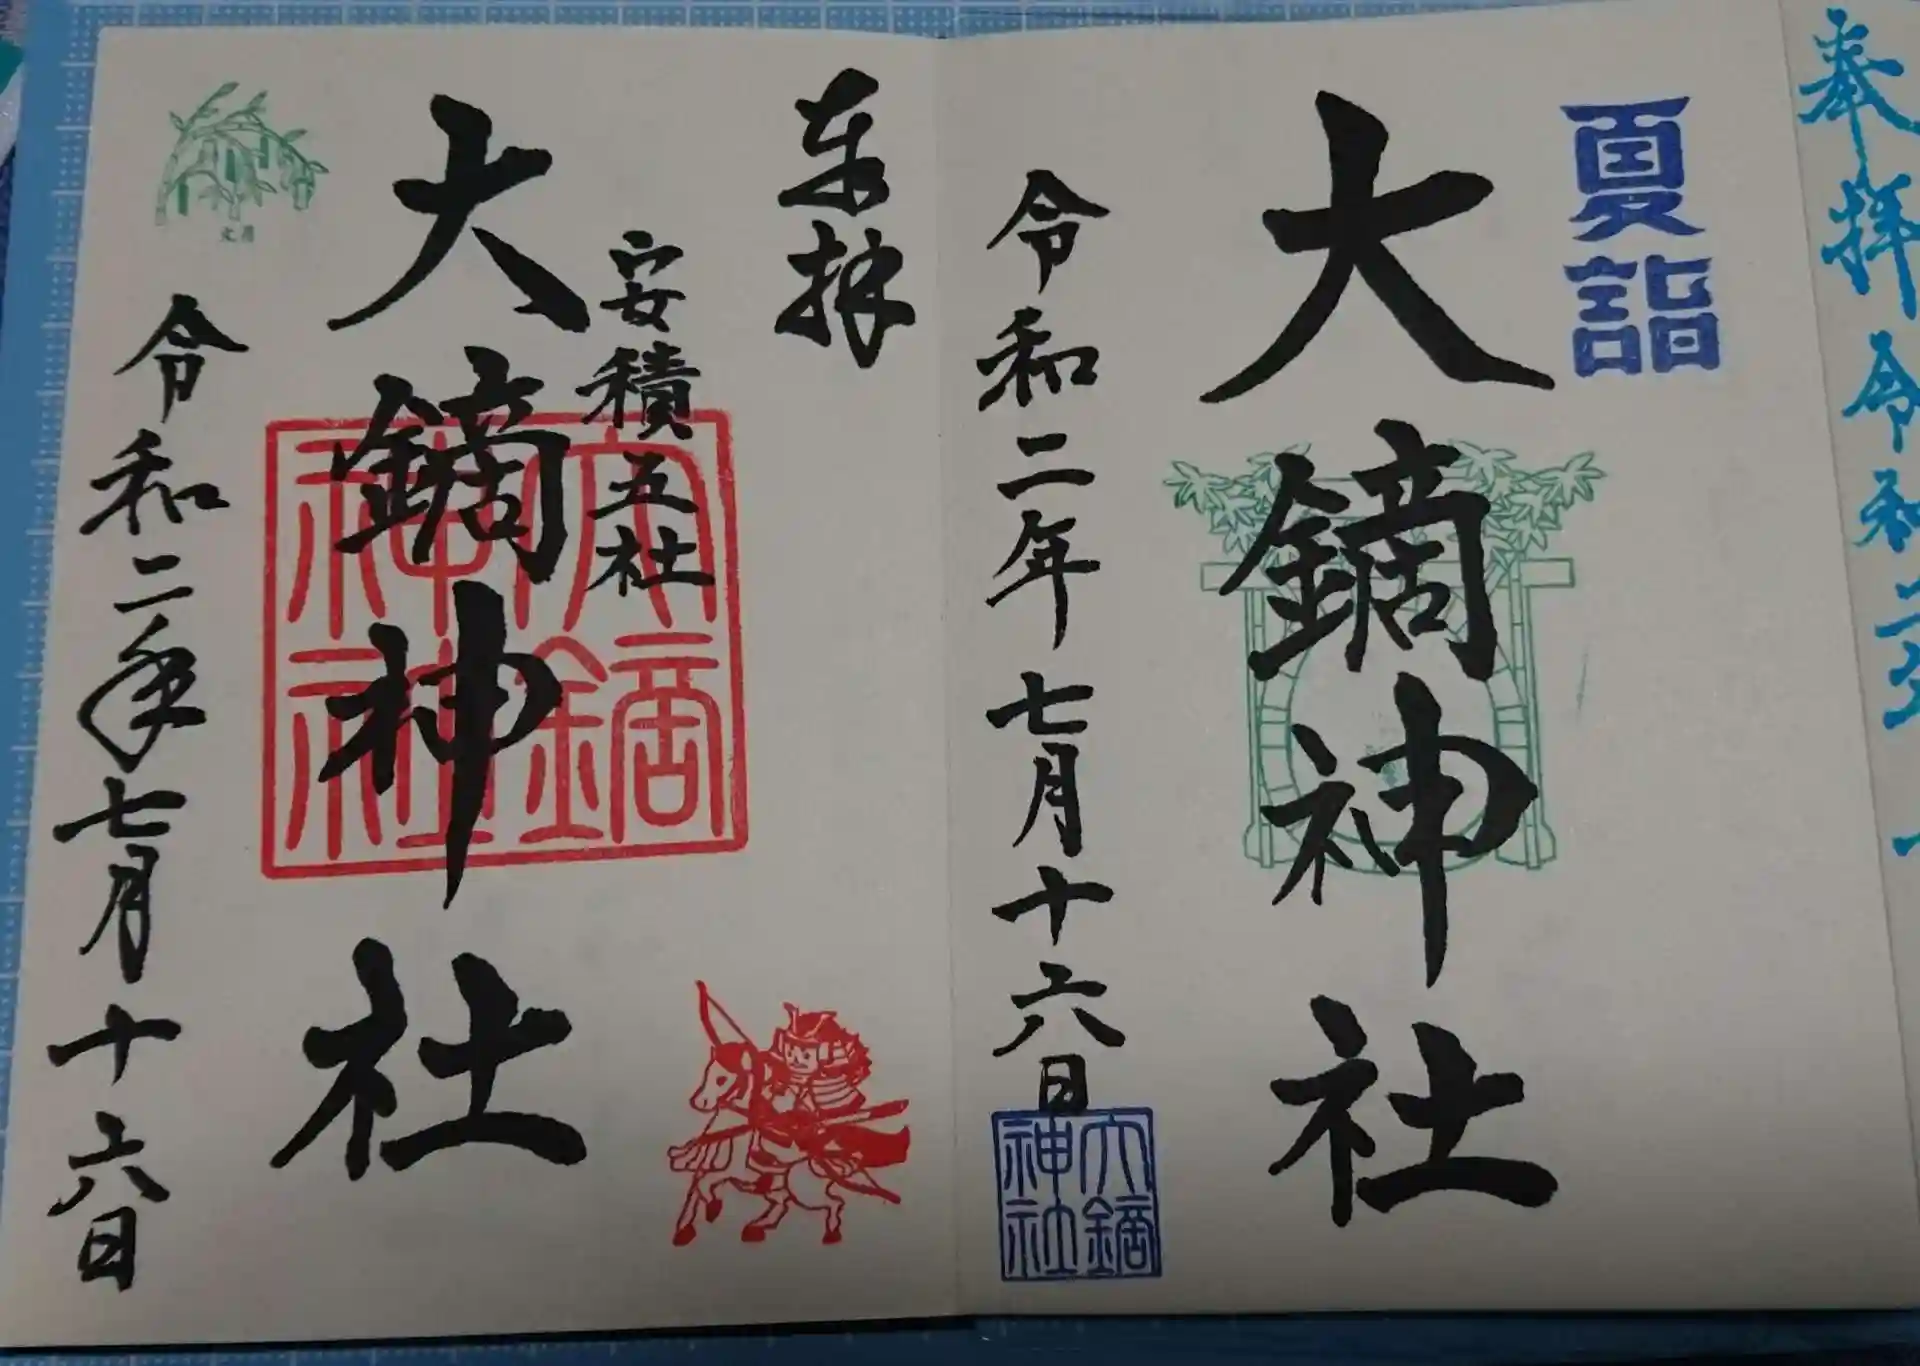 奉拝
令和二年
夏詣
大鏑神社
令和二年七月十六日
大鏑神社
奉拝
安積五社
大鏑神社
大鏑神社
文月
令和二年七月十六日